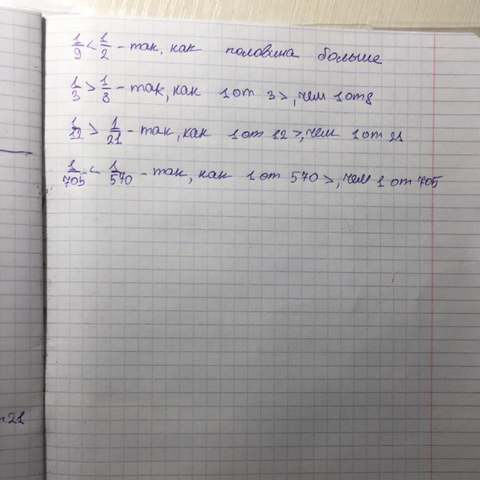 1/9 < 1/2 - так, как половина больше
1/3 > 1/8 - так, как 1 от 3 >, чем 1 от 8
1/12 > 1/21 - так, как 1 от 12 >, чем 1 от 21
1/705 < 1/570 - так, как 1 от 570 >, чем 1 от 705
21